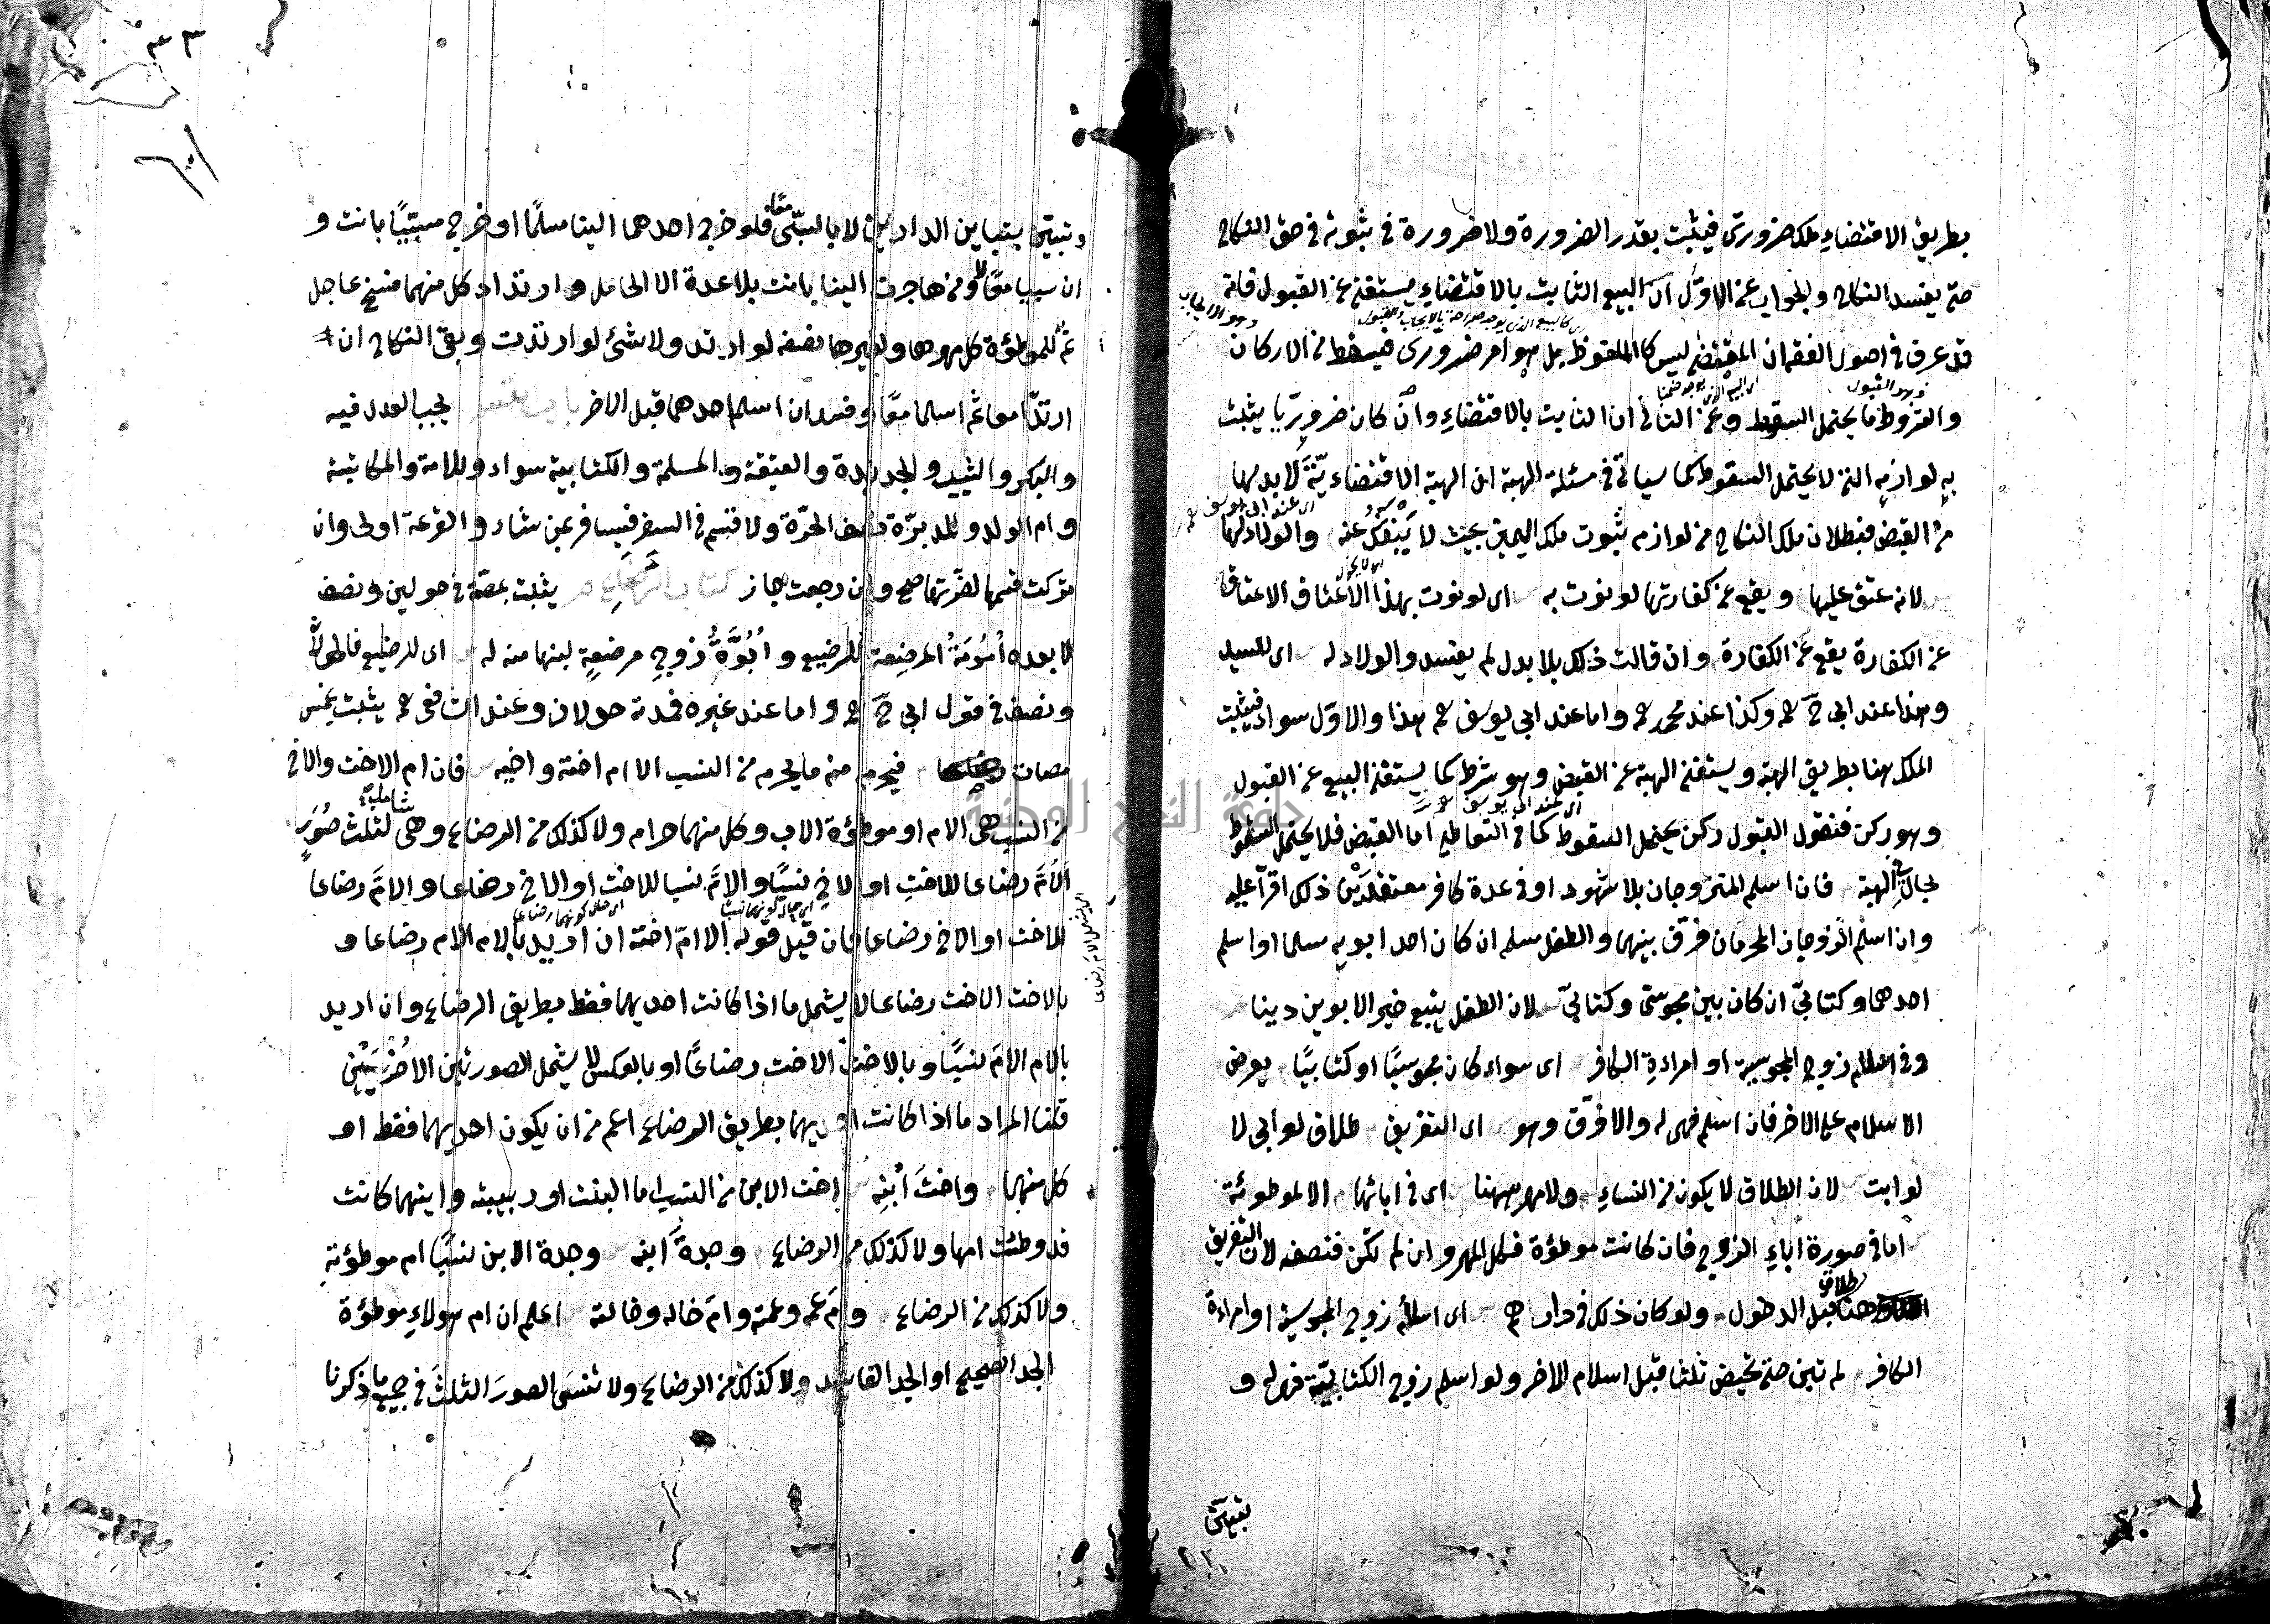 بطريق الاقتضاء ملك ضرورى فيثبت بقدر الضرورة ولا ضرورة فى ثبوته فى حق النكاح
حتى يفسد النكاح والجواب عن الاوّل ان البيع الثابت بالاقتضاء يستغنى عن القبول فانه
قد عرف فى اصول الفقه ان المقتضى ليس كالملفوظ بل هو امر ضرورى فيسقط من الاركان
والشروط ما يحتمل السقوط وعن الثانى ان الثابت بالاقتضاء وان كان ضروريّا يثبت
به لوازمه التى لا يحتمل السقوط كما سيأتى فى مسئلة الهبة ان الهبة الاقتضائيّة لابد لها
من القبض فبطلان ملك النكاح من لوازم ثبوت ملك اليمين بحيث لا ينفكّ عنه والولاء لها
لانه عتق عليها ويقع عن كفارتها لو نوت به اى لو نوت بهذا الاعتاق الاعتاق
عن الكفارة يقع عن الكفارة وان قالت ذلك بلا بدل لم يفسد والولاء له اى للسيد
وهذا عند ابى ح وكذا عند محمد واما عند ابى يوسف هذا والاوّل سواء فيثبت
الملك هنا بطريق الهبة ويستغنى الهبة عن القبض وهو شرط كما يستغنى البيع عن القبول
وهو ركن فنقول القبول ركن يحتمل السقوط كما فى التعاطى اما القبض فلا يحتمل السقوط
بحال فى الهبة فان اسلم المتزوجان بلا شهود او فى عدة كافر معتقدَيْن ذلك اقرّا عليه
وان اسلم الزوجان المحرمان فرّق بينهما والطفل مسلم ان كان احد ابويه مسلما او اسلم
احدهما وكتابىّ ان كان بين مجوسىّ وكتابىّ لان الطفل يتبع خير الابوين دينا
وفى اسلام زوج المجوسية او امراءة الكافر اى سواء كان مجوسيًّا او كتابيًّا يعرض
الاسلام على الاخر فان اسلم فهى له والا فرّق وهو اى التفريق طلاق لو ابى لا
لو ابت لان الطلاق لا يكون من النساء ولا مهر ههنا اى فى ابائها الا للموطوئة
اما فى صورة اباء الزوج فان كانت موطوءة فكل المهر وان لم تكن فنصفه لان التفريق
طلاق هنا قبل الدخول ولو كان ذلك فى دارهم اى اسلام زوج المجوسية او امراءة
الكافر لم تبن حتى تحيض ثلثا قبل اسلام الاخر ولو اسلم زوج الكتابيّة فهى له و
وتبين بتباين الدارين لا بالسبى فلو خرج احدهما الينا مسلمًا او خرج مسبيًّا بانت و
ان سبيا معًا لا ومن هاجرت الينا بانت بلا عدة الا الحامل وارتداد كل منهما فسخ عاجل
ثم للموطوءة كل مهرها ولغيرها نصفه لو ارتد ولا شئ لو ارتدت وبقى النكاح ان
ارتدّا معا ثم اسلما معًا وفسد ان اسلم احدهما قبل الاخر باب القسم يجب العدل فيه
والبكر والثيب والجديدة والعتيقة والمسلمة والكتابية سواء وللامة والمكاتبة
وام الولد والمدبّرة نصف الحرّة ولا قسم فى السفر فيسافر بمن شاء والقرعة اولى وان
تركت قسمها لضرّتها صح وان رجعت جاز كتاب الرضاع يثبت بمصّة فى حولين ونصف
لا بعده اُمُومَةُ المرضعة للرضيع واُبُوَّةُ زوج مرضعةٍ لبنها منه له اى للرضيع فالحولان
ونصف فى قول ابى ح واما عند غيره فمدته حولان وعند الشافعى يثبت بخمس
مصات فيحرم منه ما يحرم من النسب الا ام اخته واخيه فان ام الاخت والاخ
من النسب هى الام او موطوءة الاب وكل منهما حرام ولا كذلك من الرضاع وهى شاملة لثلث صُوَرٍ
الامّ رضاعا للاخت او الاخ نسبًا والامّ نسبا للاخت او الاخ رضاعا والامّ رضاعا
للاخت او الاخ رضاعا فان قيل قوله الا امّ اخته ان اريد بالام الام رضاعا و
بالاخت الاخت رضاعا لا يشمل ما اذا كانت احديهما فقط بطريق الرضاع وان اريد
بالام الامّ نسبًا وبالاخت الاخت رضاعًا او بالعكس لا يشمل الصورتين الاُخْرَيَيْن
قلنا المراد ما اذا كانت احديهما بطريق الرضاع اعم من ان يكون احديهما فقط او
كل منهما واختَ ابْنِه اخت الابن من النسب اما البنت او ربيبته وايتهما كانت
قد وطئت امها ولا كذلك من الرضاع وجدةَ ابنه وجدة الابن نسبًا ام موطوءته
ولا كذلك من الرضاع وامّ عمه وعمته وامّ خاله وخالته اعلم ان ام هولاء موطوءة
الجد الصحيح او الجد الفاسد ولا كذلك من الرضاع ولا تنسَى الصورَ الثلثَ فى جميع ما ذكرنا